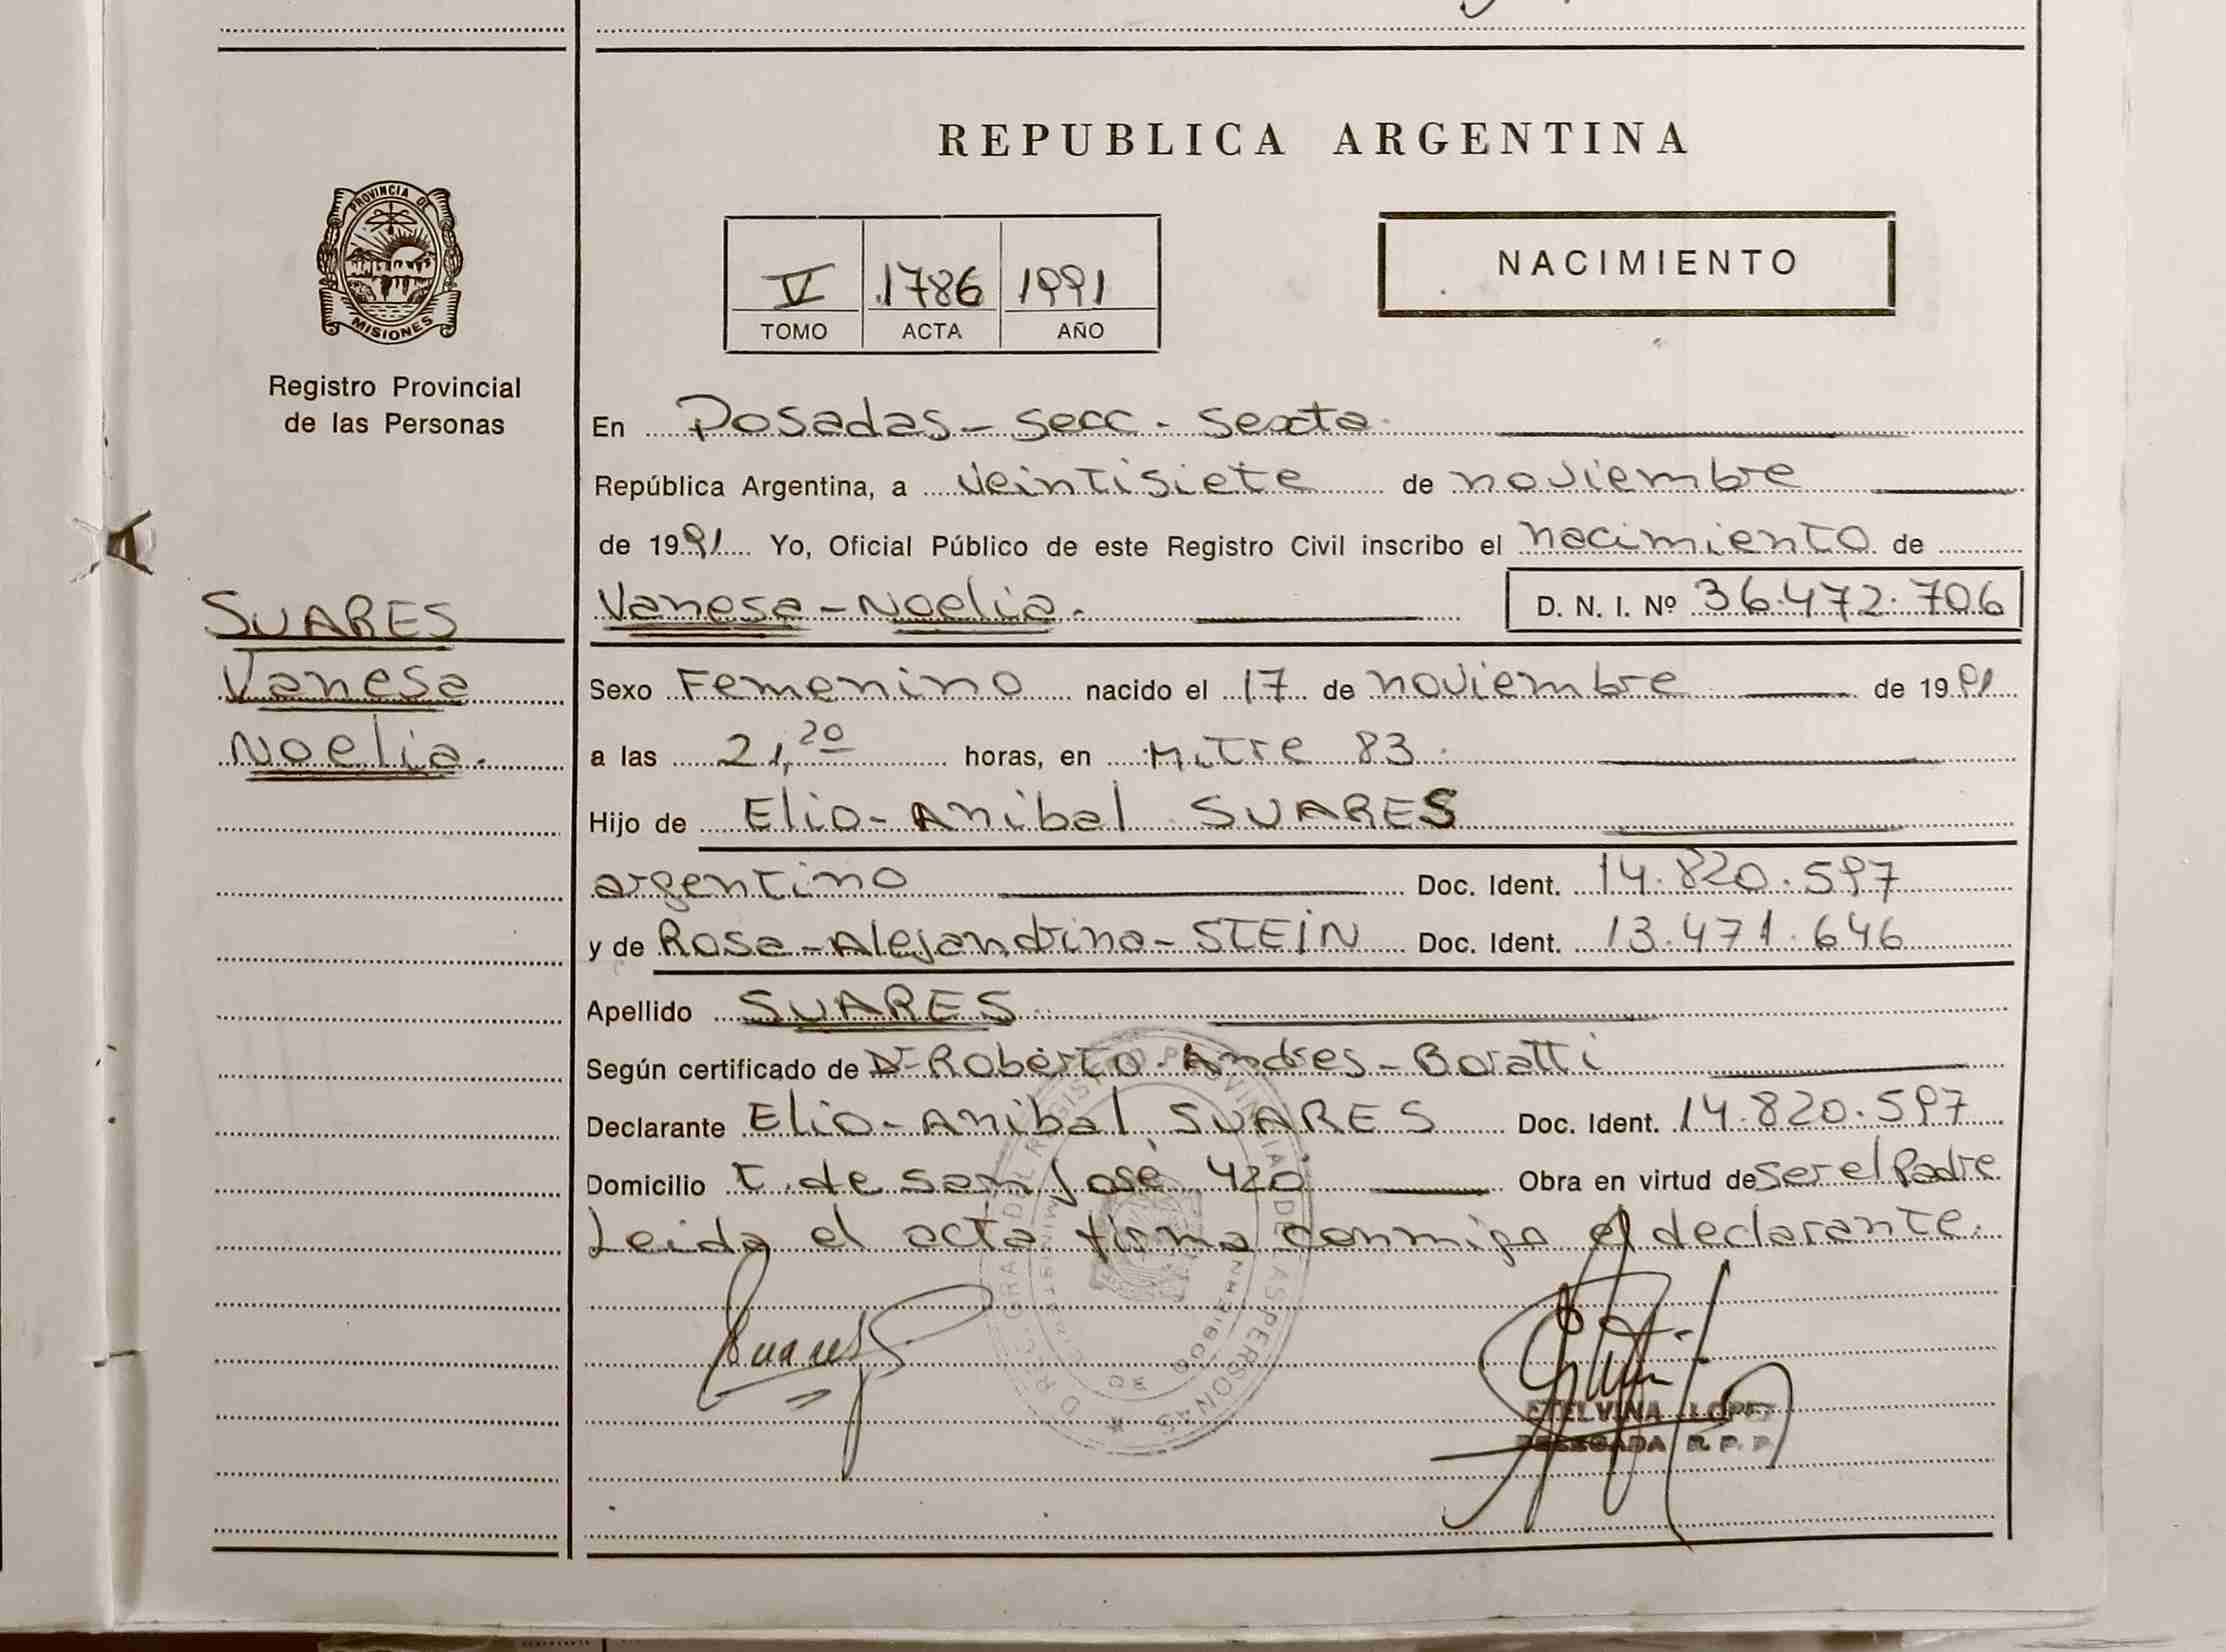 REPUBLICA ARGENTINA
PROVINCIA DE
MISIONES
Registro Provincial
de las Personas
V 1786 1991
TOMO ACTA AÑO
NACIMIENTO
En Posadas - Secc - Sexta
República Argentina, a veintisiete de noviembre
de 1991 Yo, Oficial Público de este Registro Civil inscribo el nacimiento de
SUARES
Vanesa
Noelia.
Vanesa - Noelia. D. N. I. Nº 36.472.706
Sexo Femenino nacido el 17 de noviembre de 1991
a las 21,20 horas, en Mitre 83.
Hijo de Elio - Anibal SUARES
argentino Doc. Ident. 14.820.597
y de Rosa - Alejandrina - STEIN Doc. Ident. 13.471.646
Apellido SUARES
Según certificado de Dr Roberto - Andres - Boratti
Declarante Elio - Anibal SUARES Doc. Ident. 14.820.597
Domicilio T. de San José 420 Obra en virtud de ser el Padre
Leida el acta firma conmigo el declarante.
Suares
ETELVINA LOPEZ
DELEGADA R. P. P.